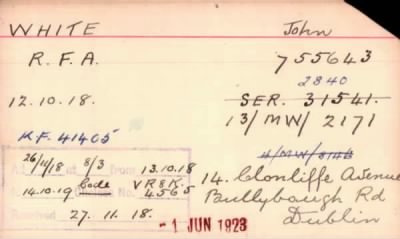 WHITE John
R. F. A. 755643
2840
12.10.18. SER. 31541.
13/MW/2171
K.F. 41405 4/MW/
26/11/18 8/3 from 13.10.18
14.10.19 Code No. VR&K. 4565
27.11.18.
14. Clonliffe Avenue
Bullybaugh Rd
Dublin
-1 JUN 1923